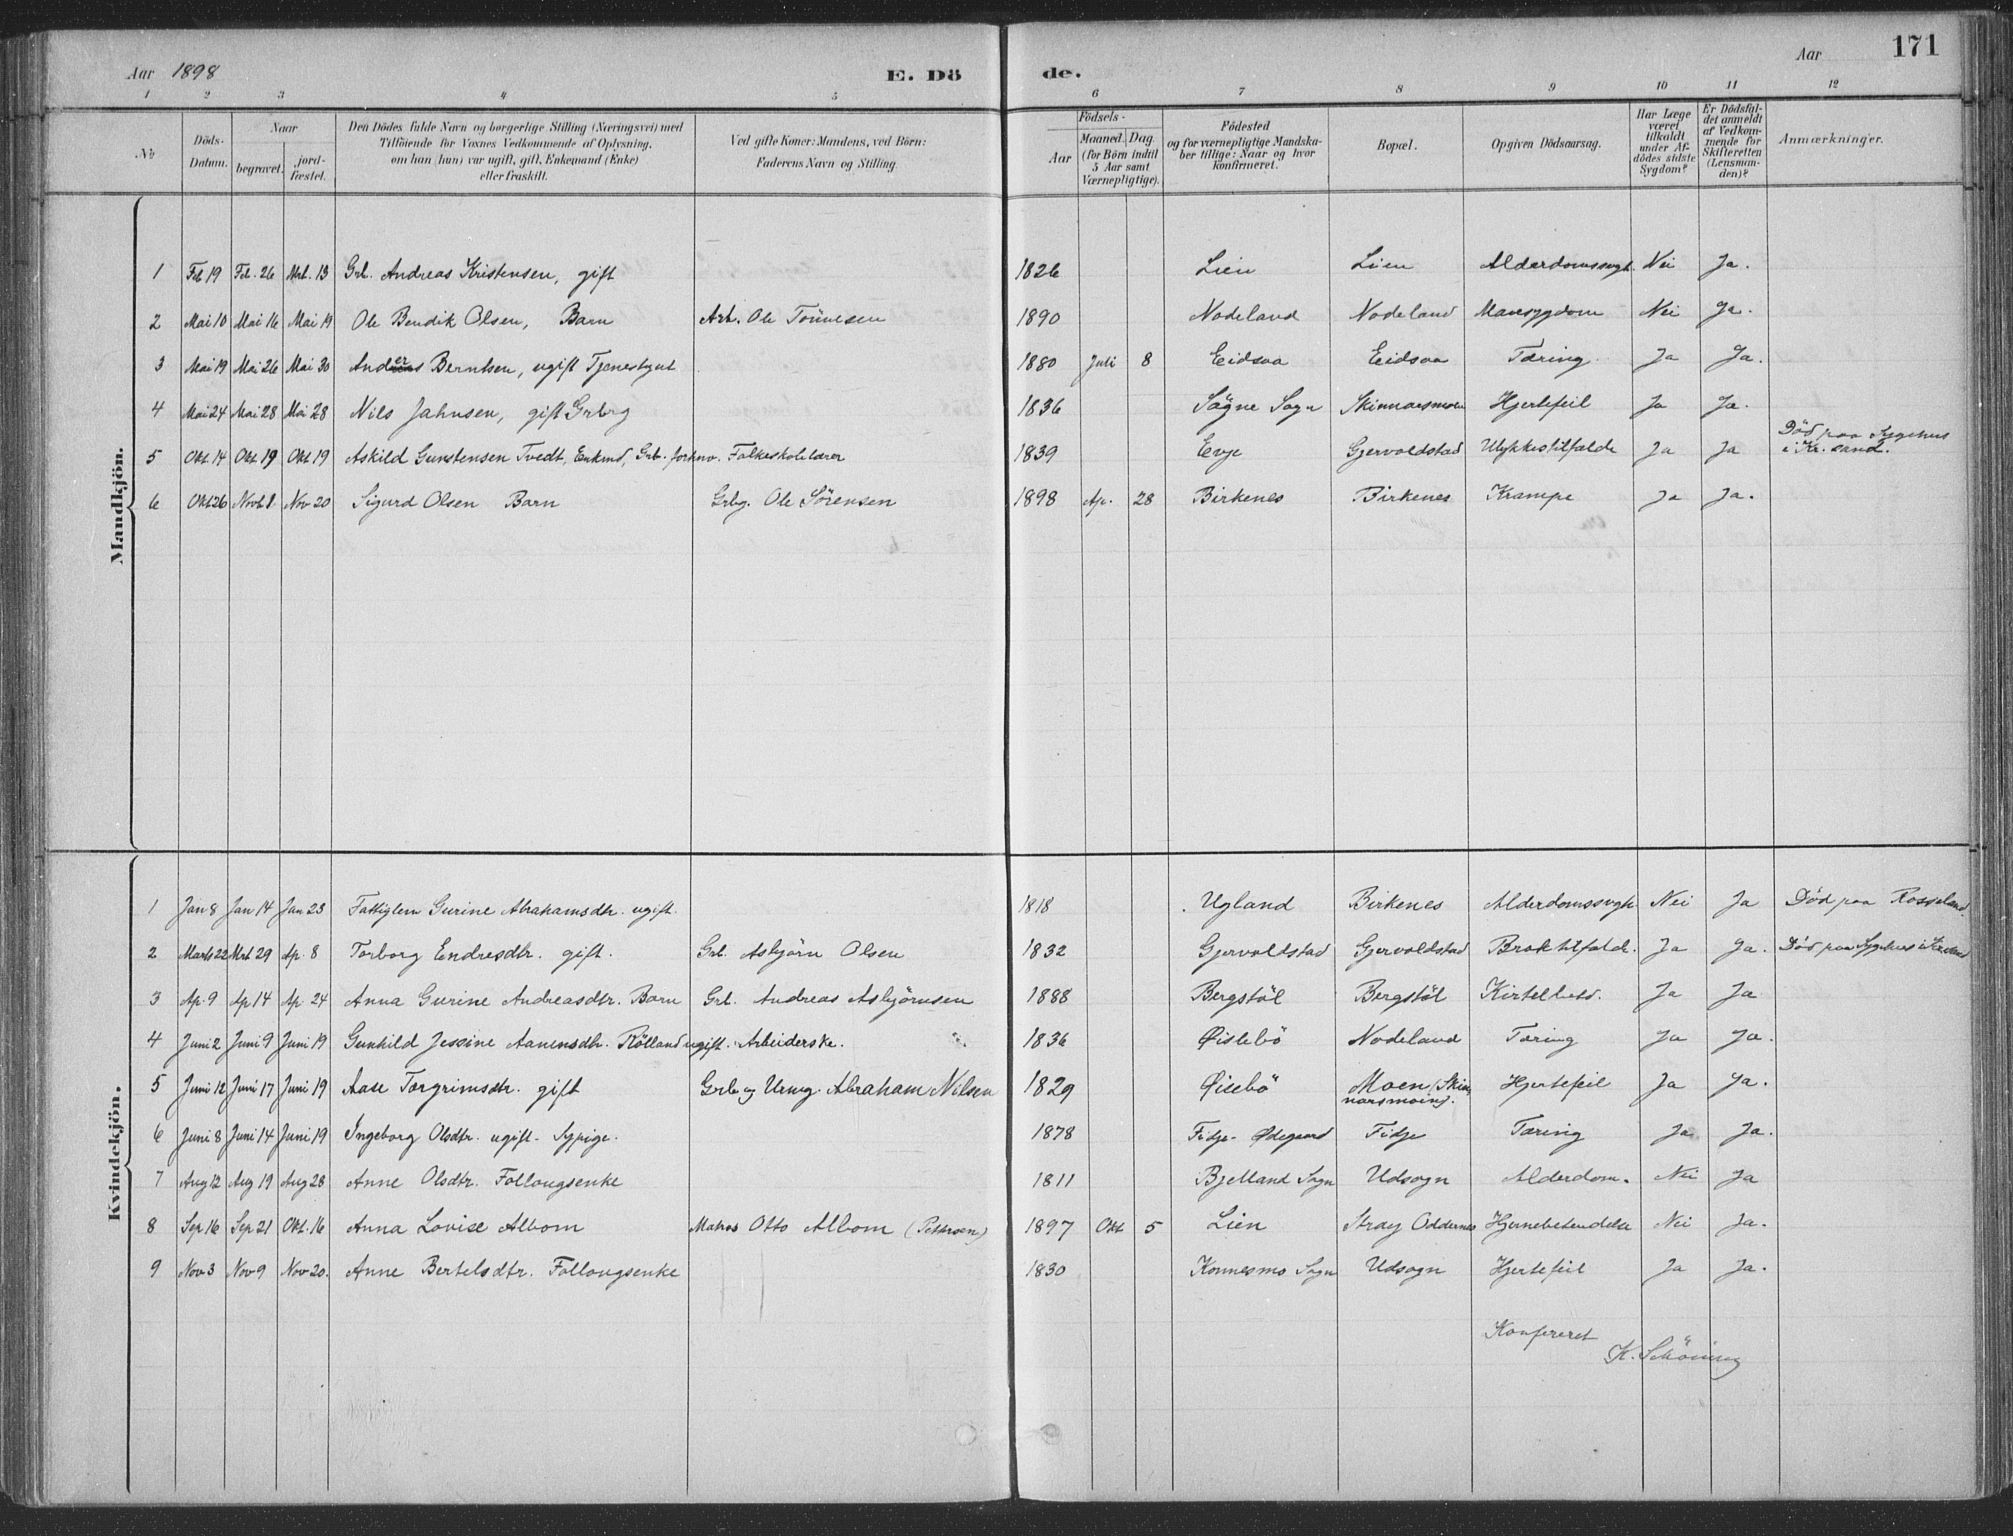 Aar 1898 E. Dö de. Aar 171
1 2 3 4 5 6 7 8 9 10 11 12
No
Döds-Datum.
Naar
begravet.
jord-fæstet.
Den Dödes fulde Navn og borgerlige Stilling (Næringsvei) med
Tilföiende for Voxnes Vedkommende af Oplysning,
om han (hun) var ugift, gift, Enkemand (Enke)
eller fraskilt.
Ved gifte Koner: Mandens, ved Börn:
Faderens Navn og Stilling.
Födsels-
Aar
Maaned. Dag.
(for Börn indtil
5 Aar samt
Værnepligtige).
Födested
og for værnepligtige Mandska-
ber tillige: Naar og hvor
konfirmeret.
Bopæl.
Opgiven Dödsaarsag.
Har Læge
været
tilkaldt
under Af-
dödes sidste
Sygdom?
Er Dödsfal-
det anmeldt
af Vedkom-
mende for
Skifteretten
(Lensman-
den)?
Anmærkninger.
Mandkjön.
1 Feb 19 Feb. 26 Mrt. 13 Grl. Andreas Kristensen, gift 1826 Lien Lien Alderdomssvgh. Nei Ja.
2 Mai 10 Mai 16 Mai 19 Ole Bendik Olsen, Barn Arb. Ole Tönnesen 1890 Nodeland Nodeland Mavesygdom Nei Ja.
3 Mai 19 Mai 26 Mai 30 Anders Berntsen, ugift Tjenestgut 1880 Juli 8 Eidsaa Eidsaa Tæring Ja Ja.
4 Mai 24 Mai 28 Mai 28 Nils Jahnsen, gift Grbrg 1836 Sögne Sogn Skinnarsmoen Hjertefeil Ja Ja.
5 Okt. 14 Okt 19 Okt 19 Askild Gunstensen Tvedt, Enkmd, Grb. forhnv. Folkeskolelærer 1839 Evje Gjervoldstad Ulykkestilfælde Ja Ja Död paa Sygehus
i Kr.sand.
6 Okt 26 Novb 1. Nov 20 Sigurd Olsen Barn Grbg. Ole Sörensen 1898 Ap. 28 Birkenes Birkenes Krampe Ja Ja.
Kvindekjön.
1 Jan 8 Jan 14 Jan 23 Fattiglem Gurine Abrahamsdtr. ugift. 1818 Ugland Birkenes Alderdomssvgh Nei Ja Död paa Rosseland.
2 Marts 22 Mrt 29 Ap. 8 Torborg Endresdtr. gift. Grl. Asbjørn Olsen 1832 Gjervoldstad Gjervoldstad Broktilfælde. Ja Ja. Död paa Sygehus i
3 Ap. 9 Ap 14 Ap 24 Anna Gurine Andreasdtr. Barn Grl. Andreas Asbjörnsen 1888 Bergstöl Bergstöl Kirtelbetd. Ja Ja
4 Juni 2 Juni 9 Juni 19 Gunhild Jessine Aanensdtr. Rölland ugift. Arbeiderske. 1836 Øislebö Nodeland Tæring Ja Ja.
5 Juni 12 Juni 17 Juni 19 Aase Torgrimsdtr. gift Grb og Urmg. Abraham Nilsen 1829 Øislebö Moen (Skin-
narsmoen). Hjertefeil Ja Ja.
6 Juni 8 Juni 14 Juni 19 Ingeborg Olsdtr. ugift - Sypige. 1878 Fidje- Ødegaard Fidje Tæring Ja Ja.
7 Aug 12 Aug 19 Aug 28 Anne Olsdtr. Follougsenke 1811 Bjelland Sogn Udsogn Alderdom. Nei Ja
8 Sep 16 Sep 21 Okt. 16 Anna Lovise Albom Matros Otto Albom (Pettersen) 1897 Okt 5 Lien Stray Oddernes Hjernebetendelse Nei Ja.
9 Nov 3 Nov 9 Nov 20. Anne Bertelsdtr. Follougsenke 1830 Konnesmo Sogn Udsogn Hjertefeil Ja Ja.
Konfereret
K. Schöning